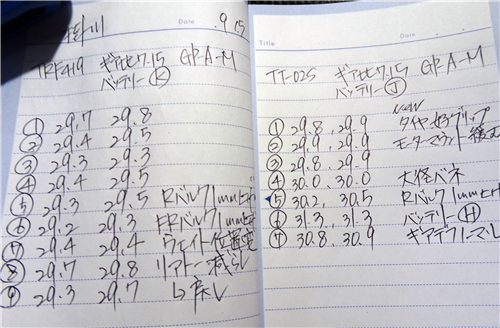 掛川 Date . 9 15
TRF419 ギア比7.15 GP.A-M
バッテリーⓀ
① 29.7 29.8
② 29.4 29.5
③ 29.3 29.3
④ 29.4 29.5
⑤ 29.3 29.5 Rバルク1mm
⑥ 29.2 29.3 FRバルク1mm
⑦ 29.4 29.4 ウェイト位置変
⑧ 29.7 29.8 リアトー減らし
⑨ 29.3 29.7 ↳戻し
Title Date
TT-02S ギア比7.15 GP.A-M
バッテリーⒿ
new
① 29.8, 29.9 タイヤ グリップ
② 29.9, 29.9 モーターマウント
③ 29.8, 29.9
④ 30.0, 30.0 大径バネ
⑤ 30.2, 30.5 Rバルク1mm
⑥ 31.3, 31.3 バッテリーⒽ
⑦ 30.8, 30.9 ギアデフノーマル